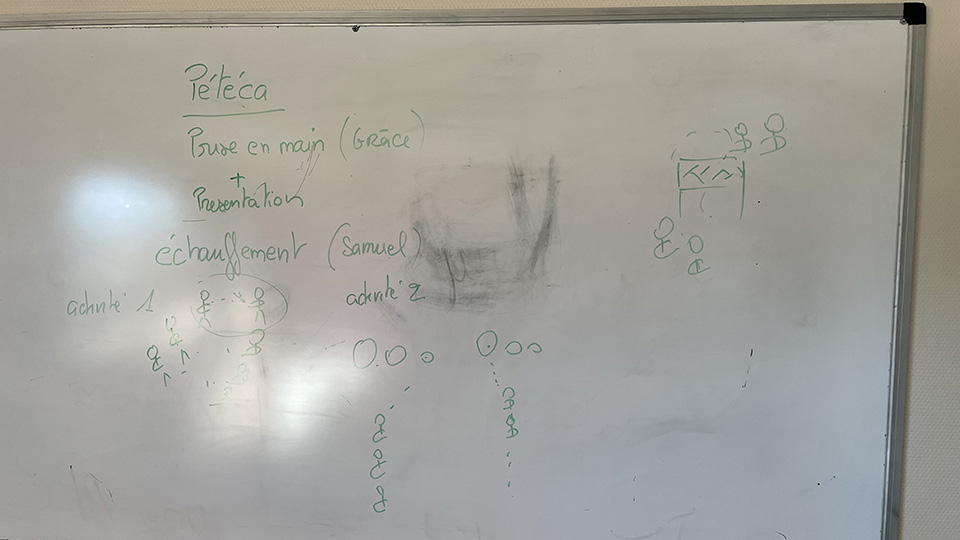 Pétéca
Prise en main (Grâce)
+
Présentation
échauffement (Samuel)
activité 1
activité 2